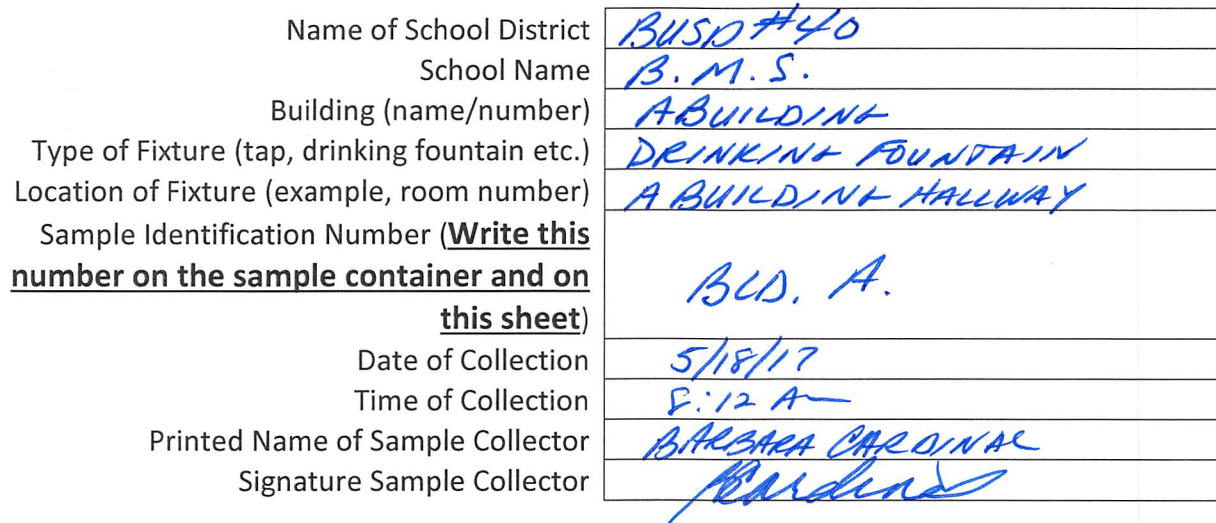 Name of School District BUSD #40
School Name B. M. S.
Building (name/number) A BUILDING
Type of Fixture (tap, drinking fountain etc.) DRINKING FOUNTAIN
Location of Fixture (example, room number) A BUILDING HALLWAY
Sample Identification Number (Write this
number on the sample container and on BLD. A.
this sheet)
Date of Collection 5/18/17
Time of Collection 8:12 A
Printed Name of Sample Collector BARBARA CARDINAL
Signature Sample Collector BCardinal